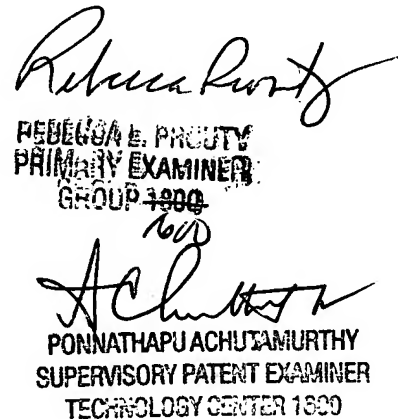 Rebecca Prouty
REBECCA E. PROUTY
PRIMARY EXAMINER
GROUP 1800
1600
PONNATHAPU ACHUTAMURTHY
SUPERVISORY PATENT EXAMINER
TECHNOLOGY CENTER 1600